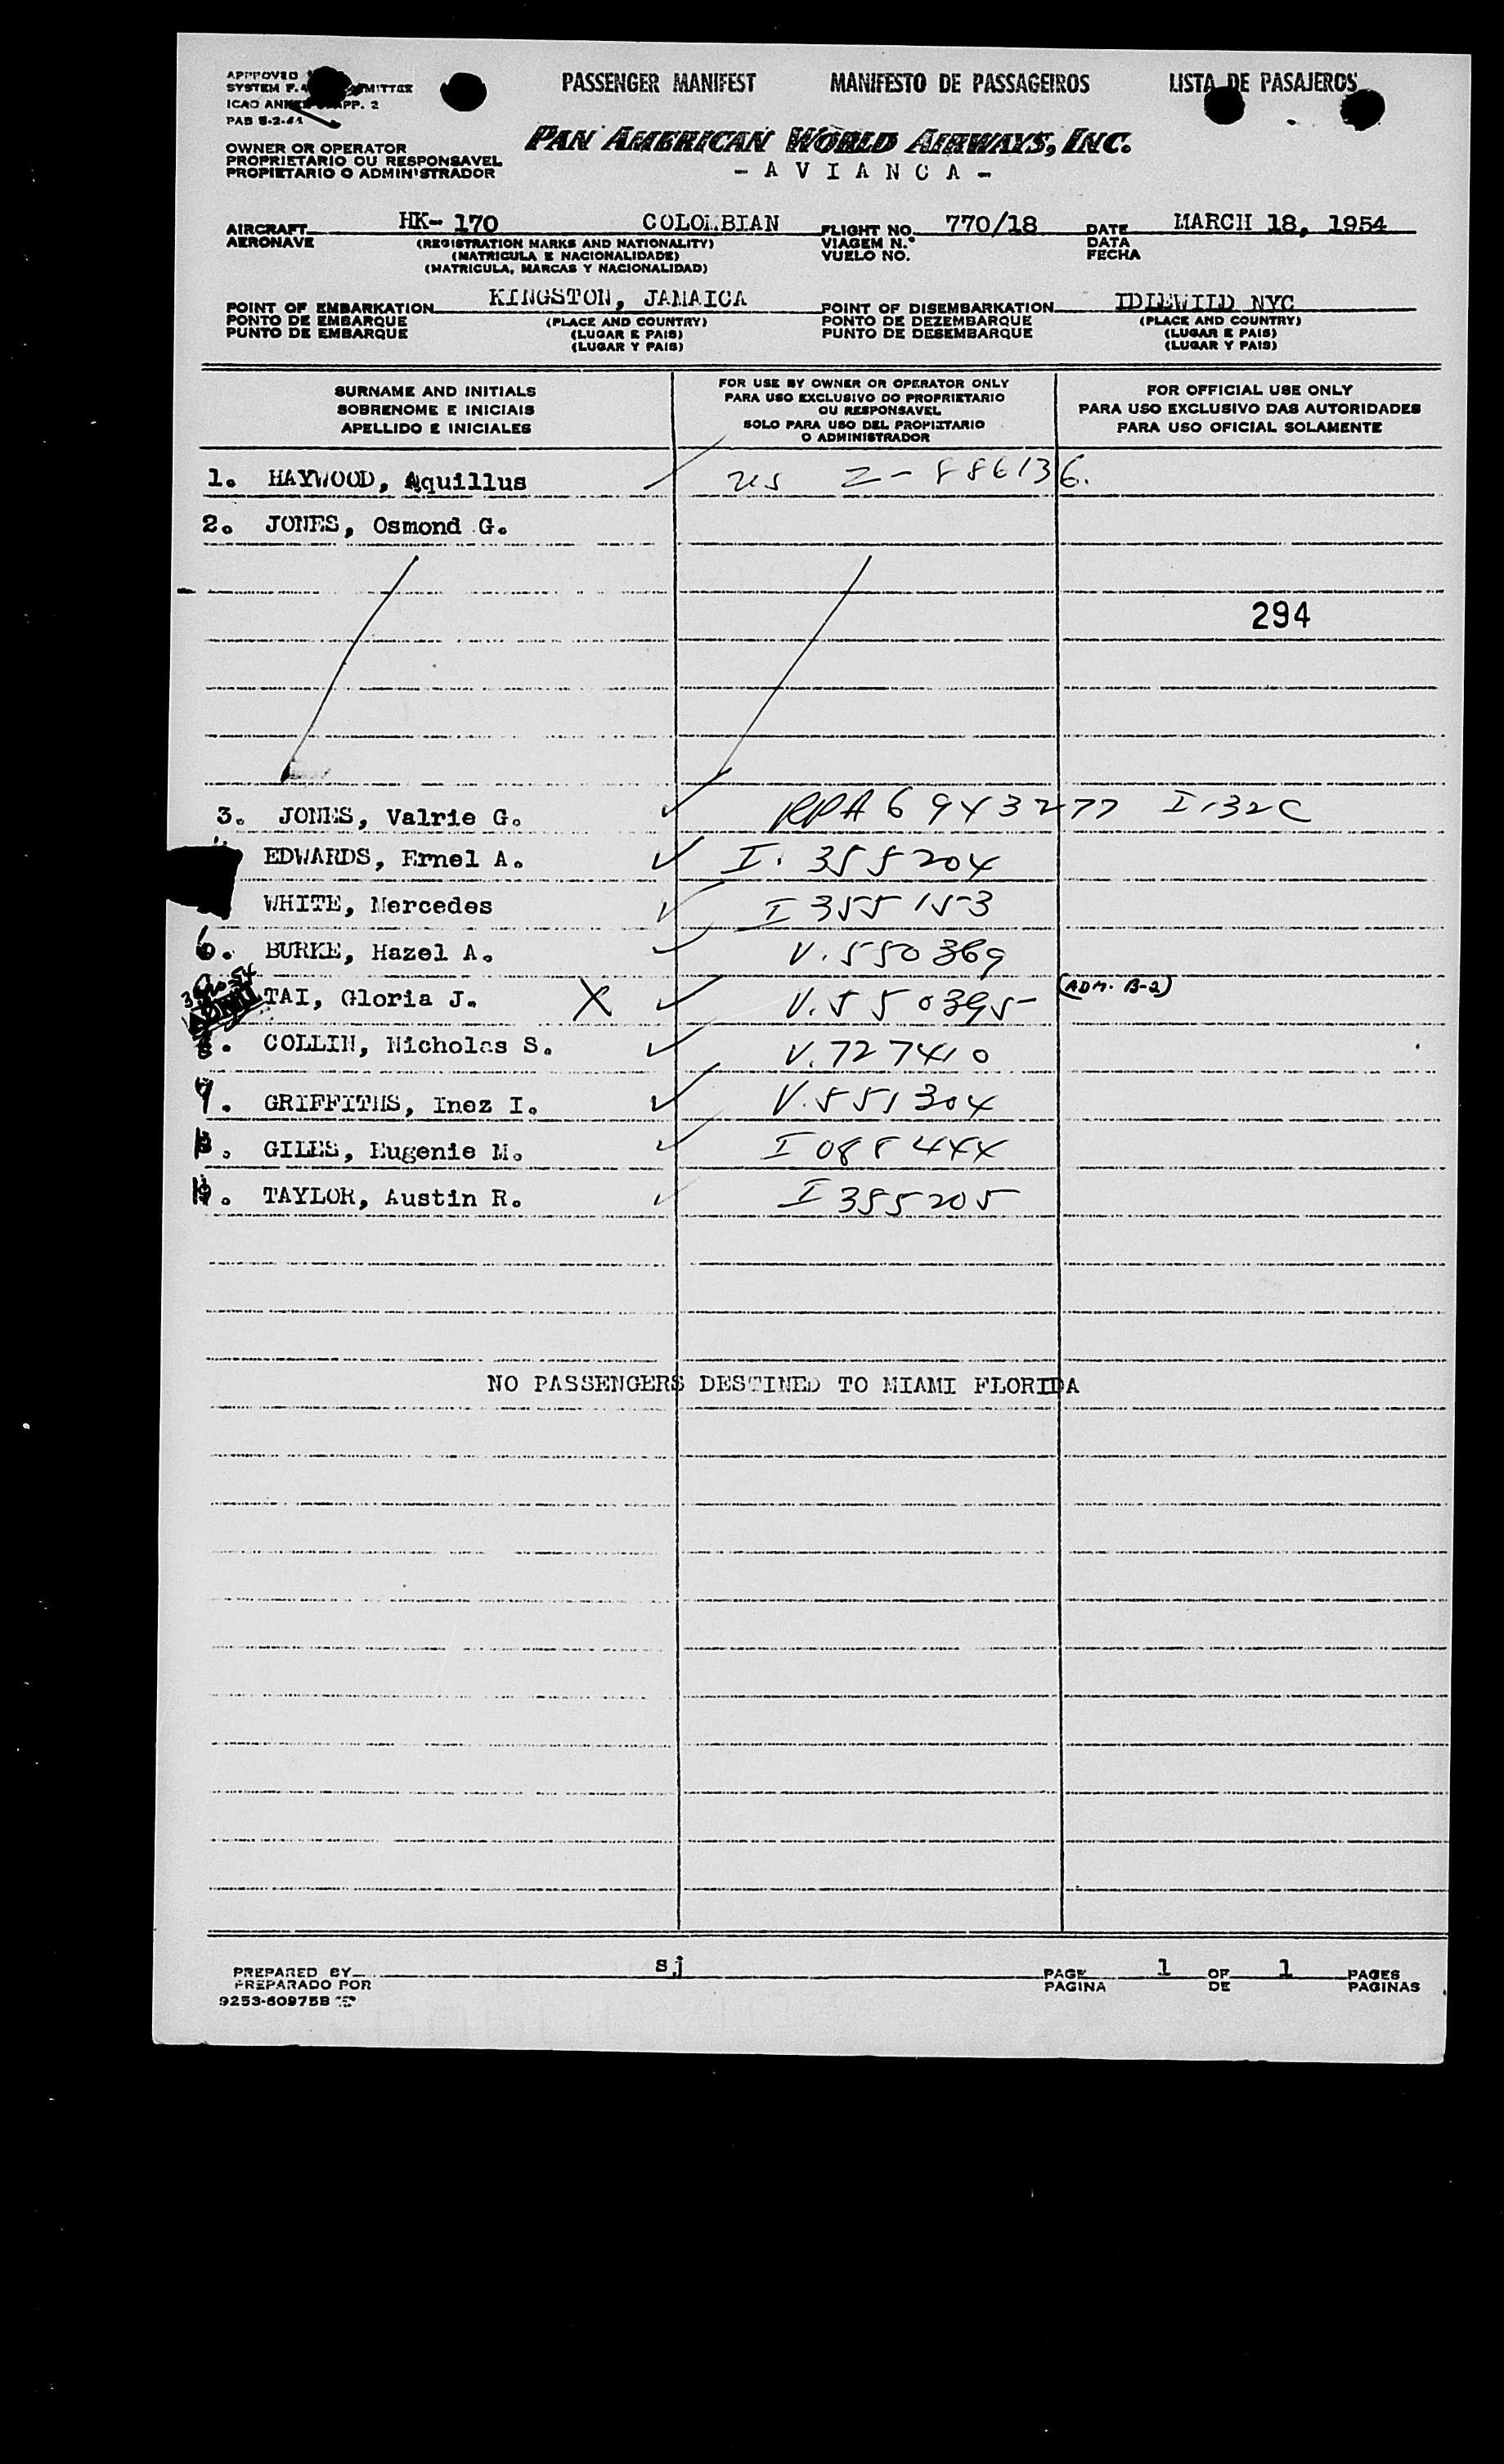 APPROVED
SYSTEM
ICAO APP. 2
PAB
PASSENGER MANIFEST MANIFESTO DE PASSAGEIROS LISTA DE PASAJEROS
OWNER OR OPERATOR
PROPRIETARIO OU RESPONSAVEL
PROPIETARIO O ADMINISTRADOR
PAN AMERICAN WORLD AIRWAYS, INC.
- A V I A N C A -
AIRCRAFT HK- 170 COLOMBIAN FLIGHT NO. 770/18 DATE MARCH 18, 1954
AERONAVE (REGISTRATION MARKS AND NATIONALITY) VIAGEM N.° DATA
(MATRICULA E NACIONALIDADE) VUELO NO. FECHA
(MATRICULA, MARCAS Y NACIONALIDAD)
POINT OF EMBARKATION KINGSTON, JAMAICA POINT OF DISEMBARKATION IDLEWILD NYC
PONTO DE EMBARQUE (PLACE AND COUNTRY) PONTO DE DEZEMBARQUE (PLACE AND COUNTRY)
PUNTO DE EMBARQUE (LUGAR E PAIS) PUNTO DE DESEMBARQUE (LUGAR E PAIS)
(LUGAR Y PAIS) (LUGAR Y PAIS)
SURNAME AND INITIALS
SOBRENOME E INICIAIS
APELLIDO E INICIALES
FOR USE BY OWNER OR OPERATOR ONLY
PARA USO EXCLUSIVO DO PROPRIETARIO
OU RESPONSAVEL
SOLO PARA USO DEL PROPIETARIO
O ADMINISTRADOR
FOR OFFICIAL USE ONLY
PARA USO EXCLUSIVO DAS AUTORIDADES
PARA USO OFICIAL SOLAMENTE
1. HAYWOOD, Aquillus US Z-886136.
2. JONES, Osmond G.
294
3. JONES, Valrie G. RPA 6943277 I-132C
EDWARDS, Ernel A. I. 355204
WHITE, Mercedes I 355153
6. BURKE, Hazel A. V. 550369
TAI, Gloria J. X V. 550395 (ADM. B-2)
8. COLLIN, Nicholas S. V. 727410
9. GRIFFITHS, Inez I. V. 551304
GILES, Eugenie M. I 088444
TAYLOR, Austin R. I 355205
NO PASSENGERS DESTINED TO MIAMI FLORIDA
PREPARED BY sj PAGE 1 OF 1 PAGES
PREPARADO POR PAGINA DE PAGINAS
9253-60975B